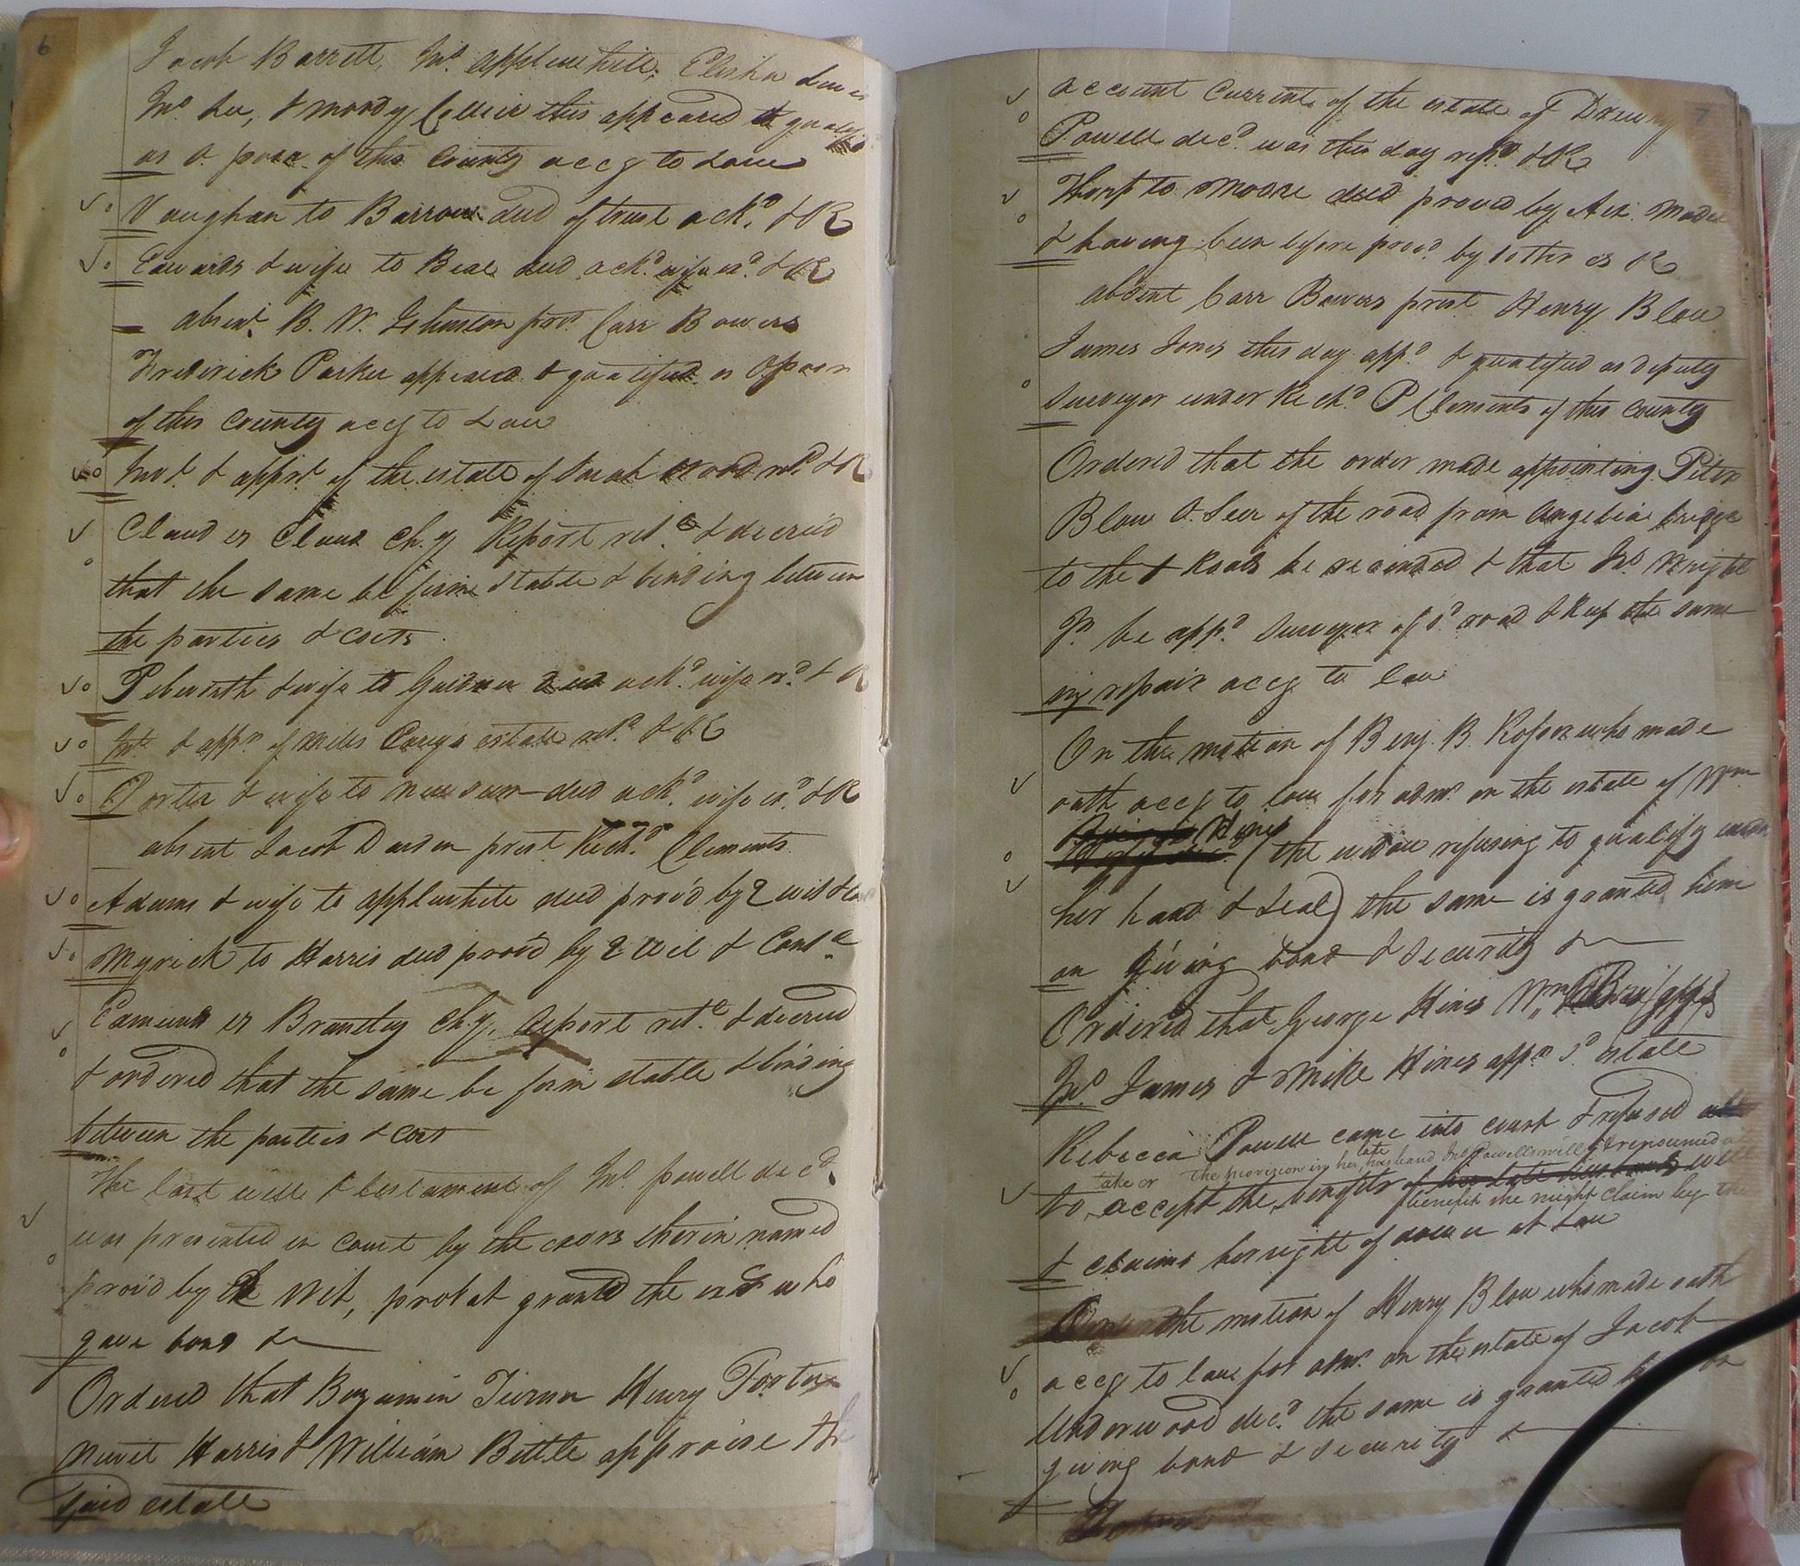 6
Jacob Barrett, Jnº. Applewhite, Elisha
Jnº. Lee, & Moody Collier this appeared & qualifd
as O. poor of this County accg to Law
Vaughan to Barrow deed of trust ackd. & OR
Edwards & wife to Beal deed ackd. wife exd. & OR
absent B. W. Johnson prest Carr Bowers
Frederick Parker appeared & qualified as O poor
of this County accg to Law
Invt. & apprt. of the estate of Sarah Wood retd & OR
Claud vs Claud Ch.y Report retd. & decreed
that the same be firm stable & binding between
the parties & costs.
Pebworth & wife to Gardner deed ackd. wife exd. & OR
Invt. & appr. of Miles Cary's estate retd. & OR
Porter & wife to Newsum deed ackd. wife exd. & OR
absent Jacob Darden prest Richd. Clements
Adams & wife to Applewhite deed prov'd by 2 wit &
Myrick to Harris deed prov'd by 2 Wit & Cont.
Edmunds vs Brantley Ch.y. Report retd. & decreed
& ordered that the same be firm stable & binding
between the parties & cost
The last will & testament of Jnº. Powell decd.
was presented in Court by the exors therein named
prov'd by the Wit, probat granted the exors who
gave bond &
Ordered that Benjamin Turner Henry Porter
Newit Harris & William Bittle appraise the
said estate
7
Account Current of the estate of Drewry
Powell decd. was this day retd. & OR
Tharp to Moore deed proved by Ben. Moore
& having been before proved by 1 other is OR
absent Carr Bowers prest Henry Blow
James Jones this day appd. & qualified as deputy
Surveyor under Richd. P Clements of this County
Ordered that the order made appointing Peter
Blow O. Seer of the road from Angelica bridge
to the X Roads be rescinded & that Jnº. Wright
Jr. be appd. Surveyor of sd. road & keep the same
in repair accg to law
On the motion of Benj. B. Roper who made
oath accg to law for admr. on the estate of Wm.
Hines (the widow refusing to qualify under
her hand & seal) the same is granted him
on giving bond & security &
Ordered that George Hines Wm.
Jnº. James & Mike Hines appr. sd. estate
Rebecca Powell came into court & refused
take or the provision in her late husband Jnº Powells will & renounced
to accept the benefits of his late husbands will
benefit she might claim by the
& claims her right of dower at Law
On the motion of Henry Blow who made oath
accg to law for admr. on the estate of Jacob
Underwood decd. the same is granted him on
giving bond & security &